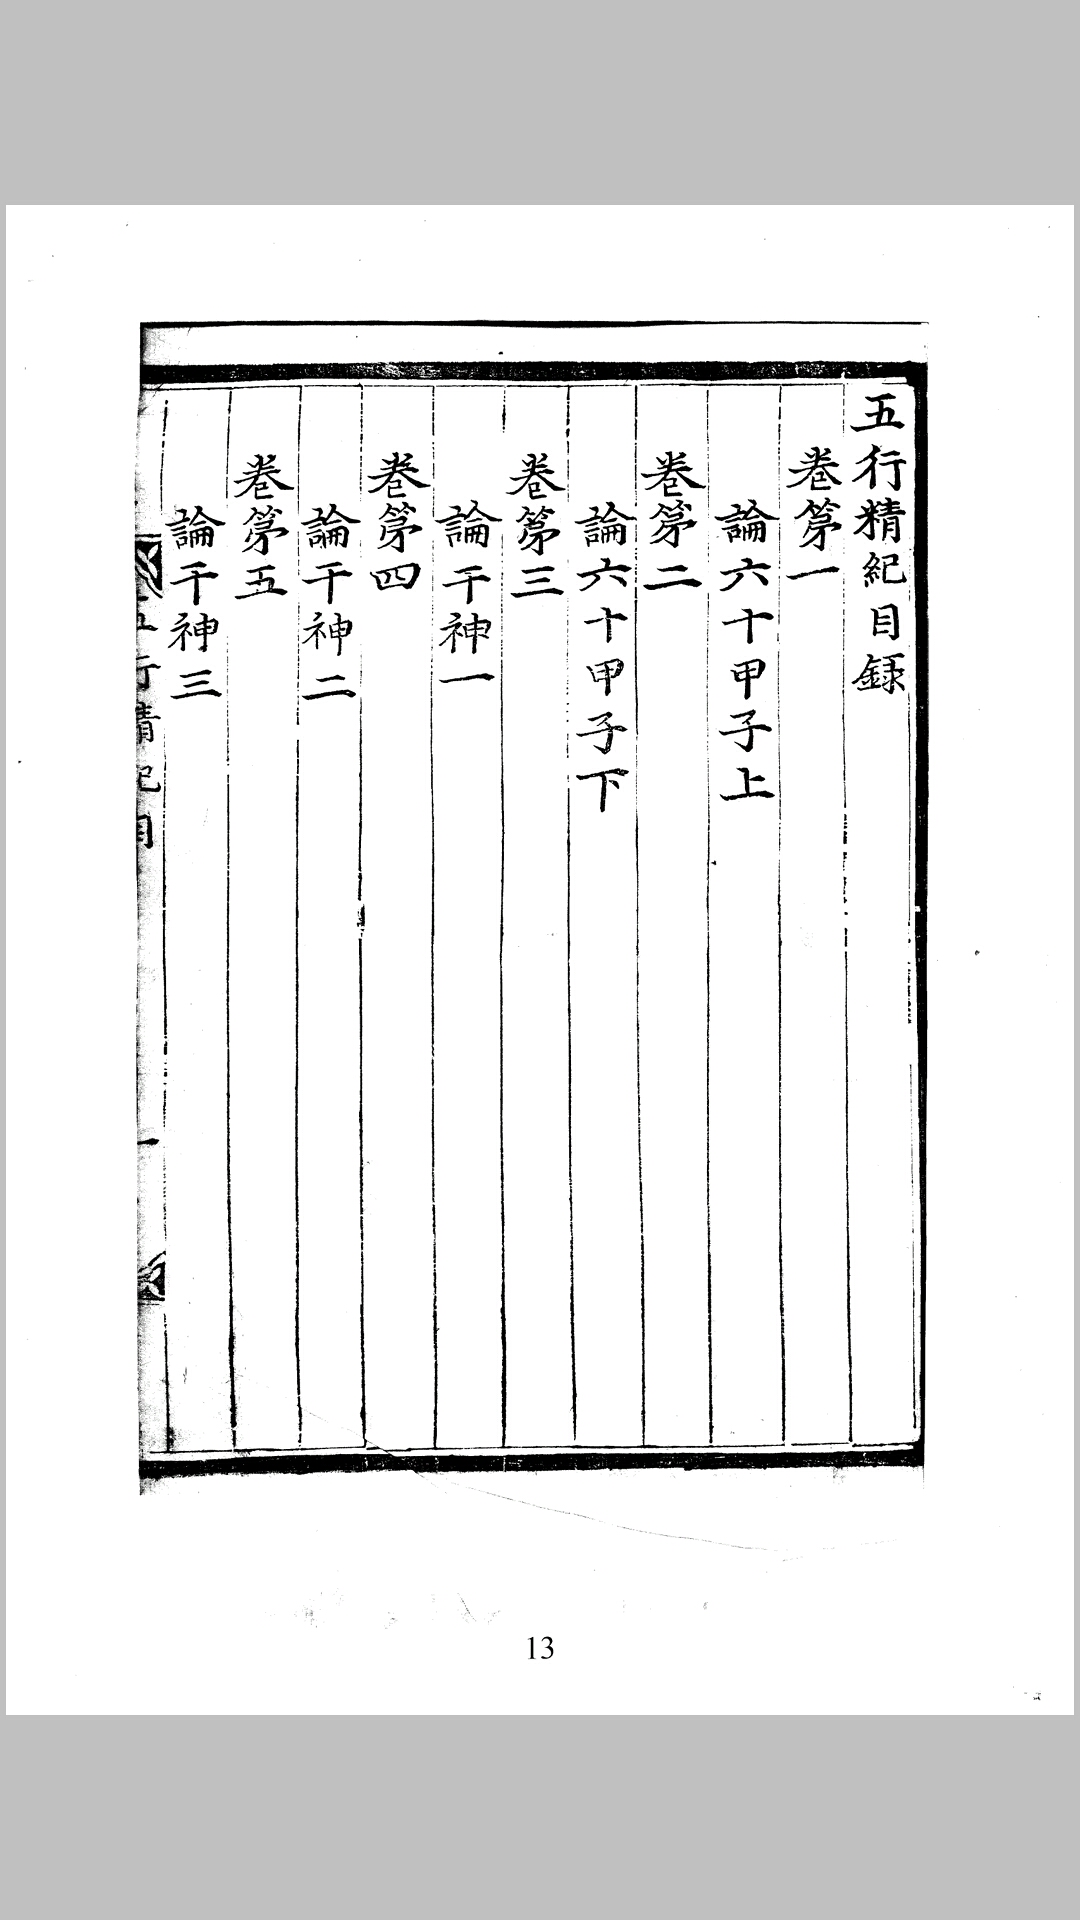 五行精紀目録
卷第一
論六十甲子上
卷第二
論六十甲子下
卷第三
論干神一
卷第四
論干神二
卷第五
論干神三
五行精紀目
一
13